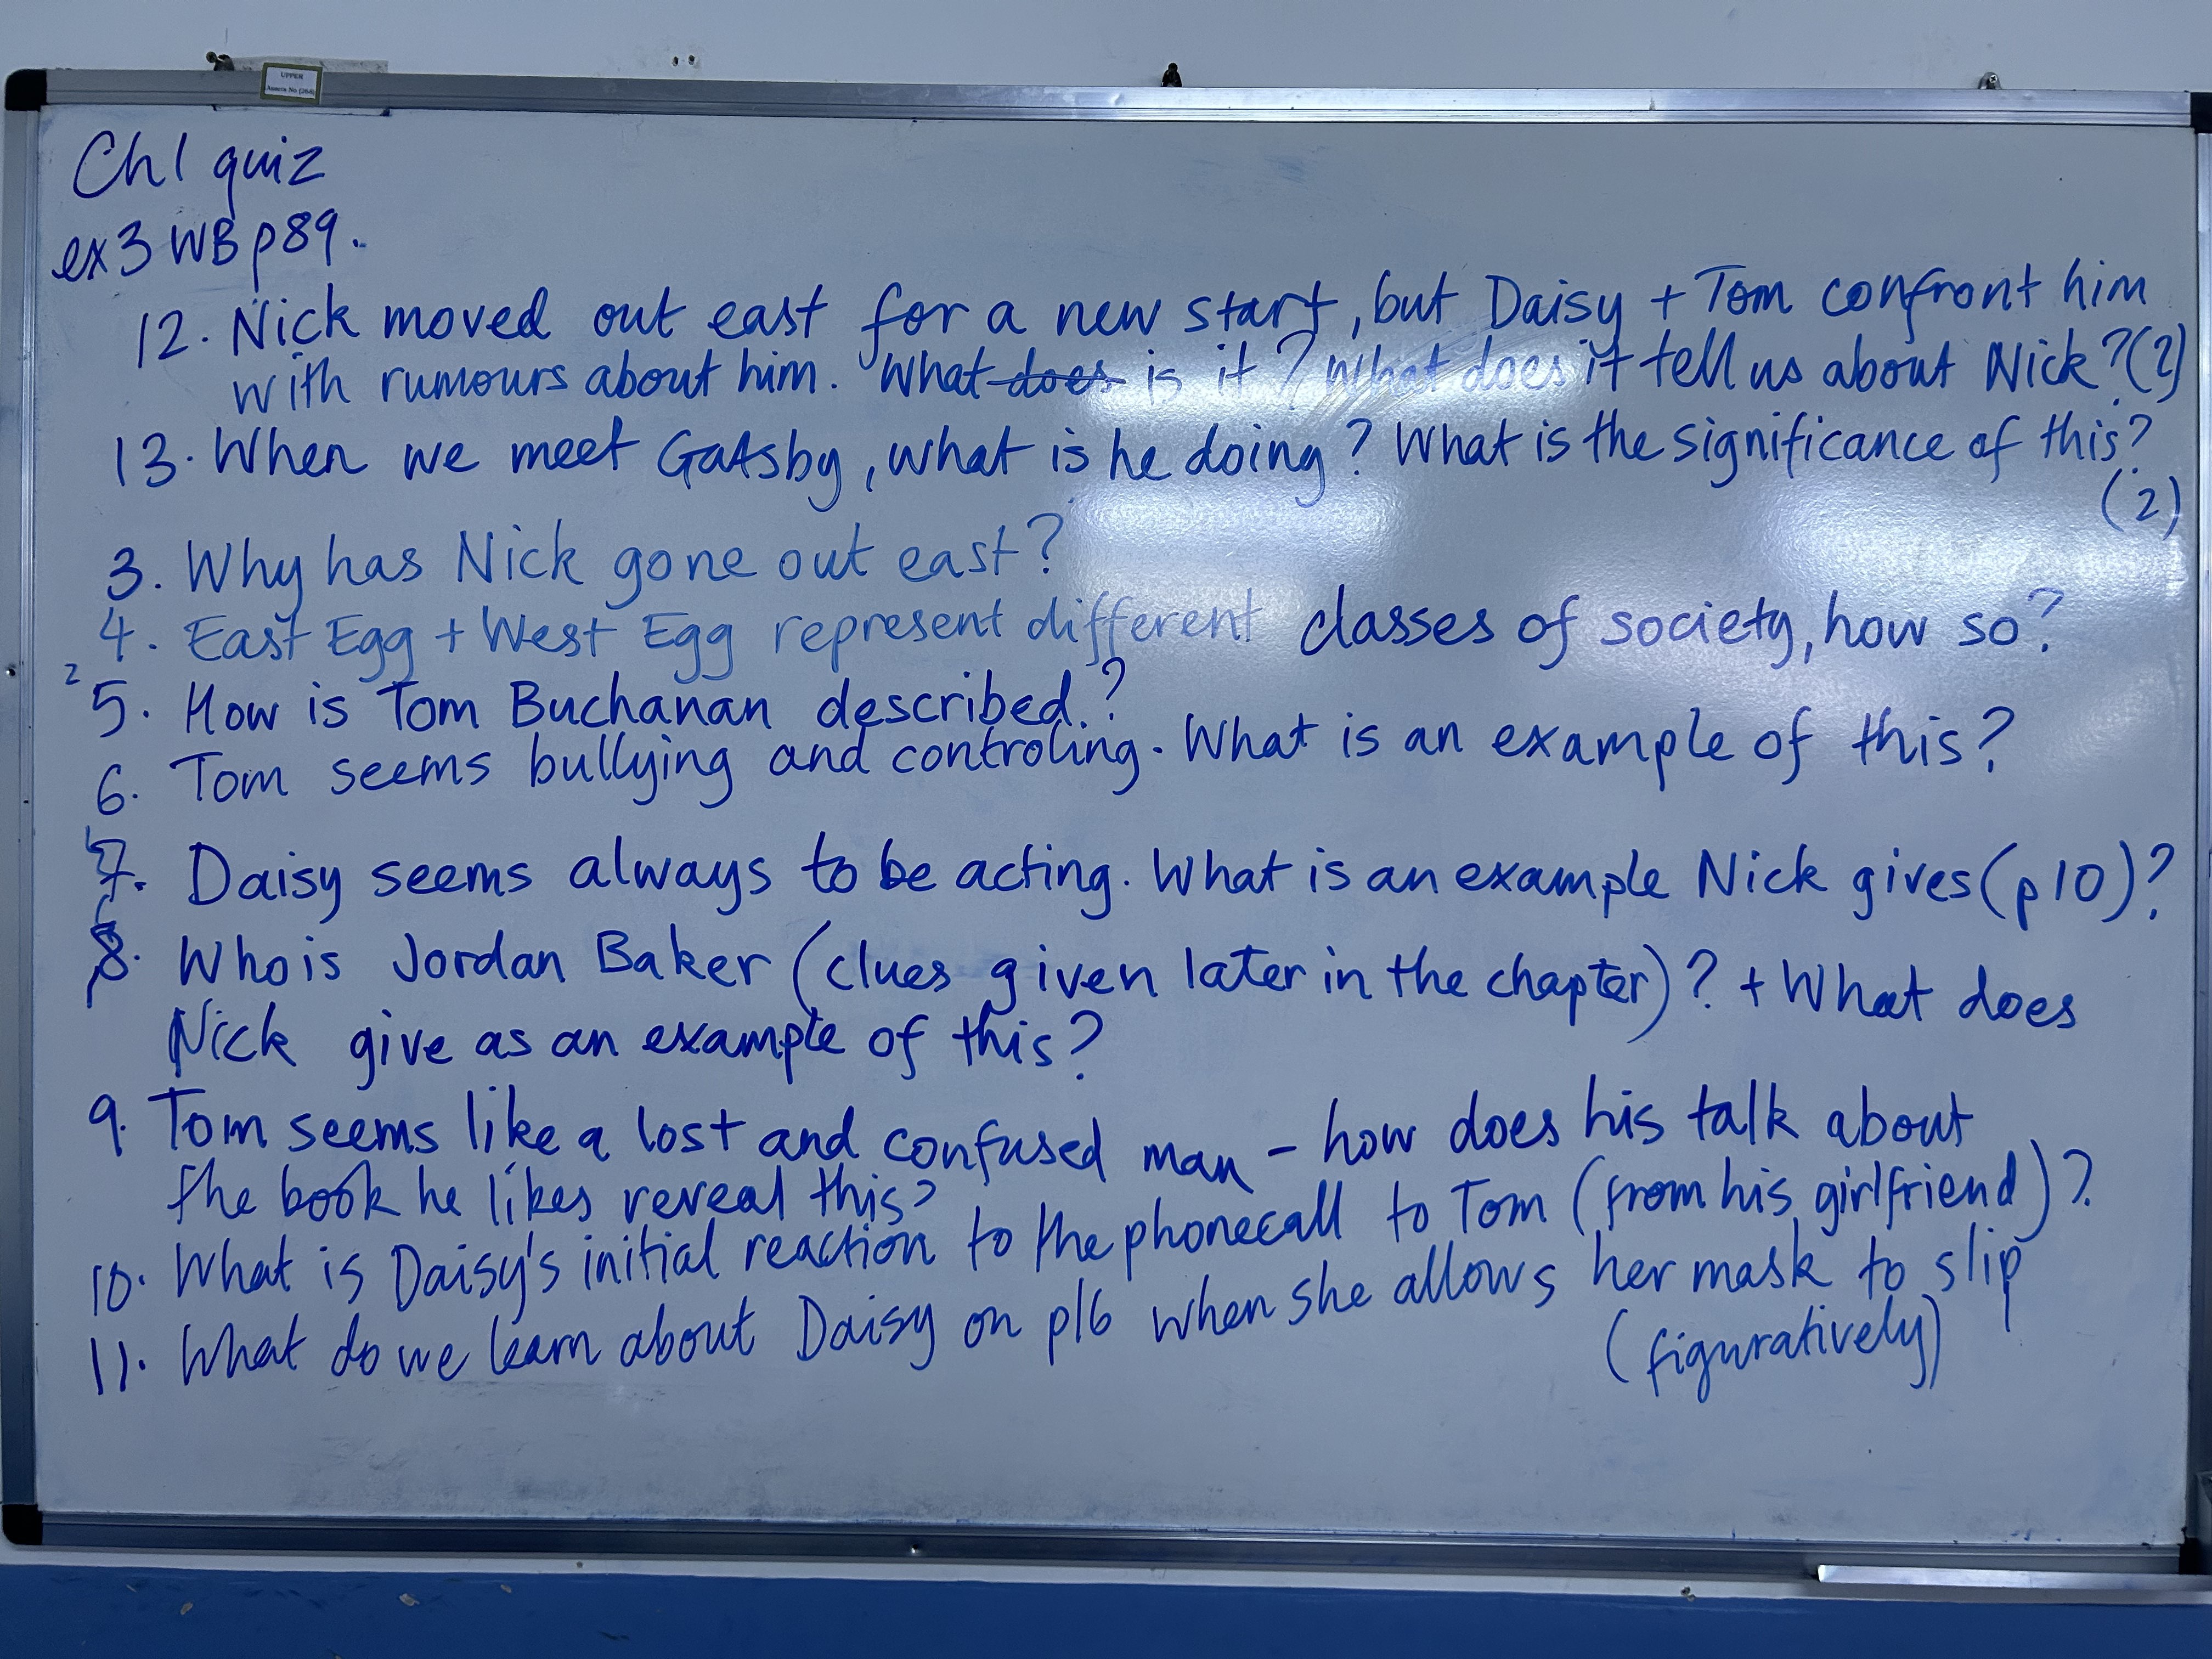 UPPER
Ch1 quiz
ex3 WB p89.
12. Nick moved out east for a new start, but Daisy + Tom confront him
with rumours about him. What does is it? What does it tell us about Nick? (2)
13. When we meet Gatsby, what is he doing? What is the significance of this?
(2)
3. Why has Nick gone out east?
4. East Egg + West Egg represent different classes of society, how so?
2
5. How is Tom Buchanan described.?
6. Tom seems bullying and controling. What is an example of this?
7. Daisy seems always to be acting. What is an example Nick gives (p10)?
8. Who is Jordan Baker (clues given later in the chapter)? + What does
Nick give as an example of this?
9. Tom seems like a lost and confused man - how does his talk about
the book he likes reveal this?
10. What is Daisy's initial reaction to the phonecall to Tom (from his girlfriend)?
11. What do we learn about Daisy on p16 when she allows her mask to slip
(figuratively)